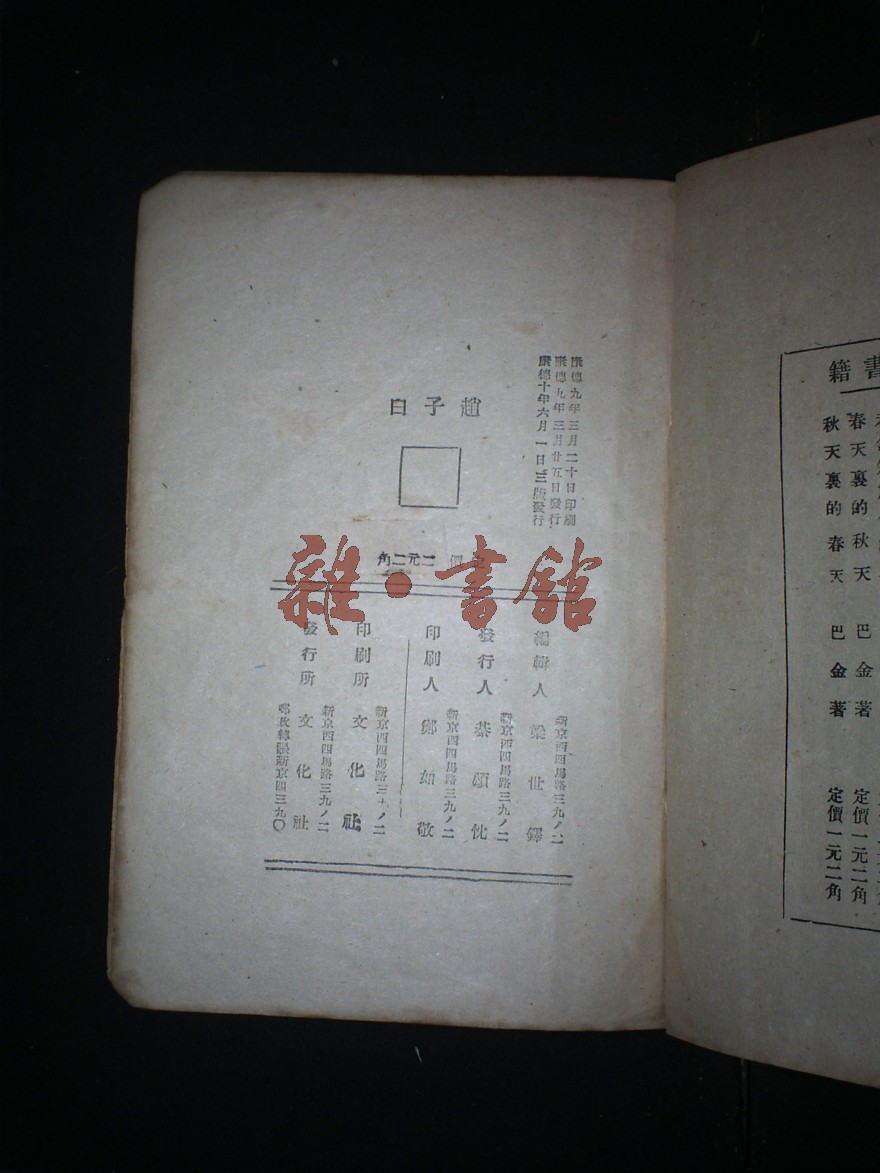 康德九年三月二十日印刷
康德九年三月廿五日發行
康德十年六月一日三版發行
趙子曰
定價二元二角
雜·書館
編輯人 梁世鐸
新京西四馬路三九ノ二
發行人
新京西四馬路三九ノ二
印刷人 鄭如敬
新京西四馬路三九ノ二
印刷所 文化社
新京西四馬路三九ノ二
發行所 文化社
新京西四馬路三九ノ二
郵政轉賬新京四三九〇
書籍
春天裏的秋天 巴金著 定價一元二角
秋天裏的春天 巴金著 定價一元二角